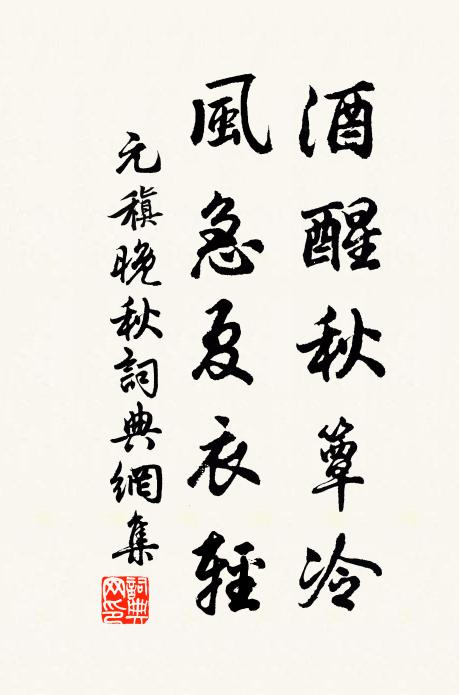 酒醒秋簟冷
風急夏衣輕
元稹晚秋詞典網集
詞典網印